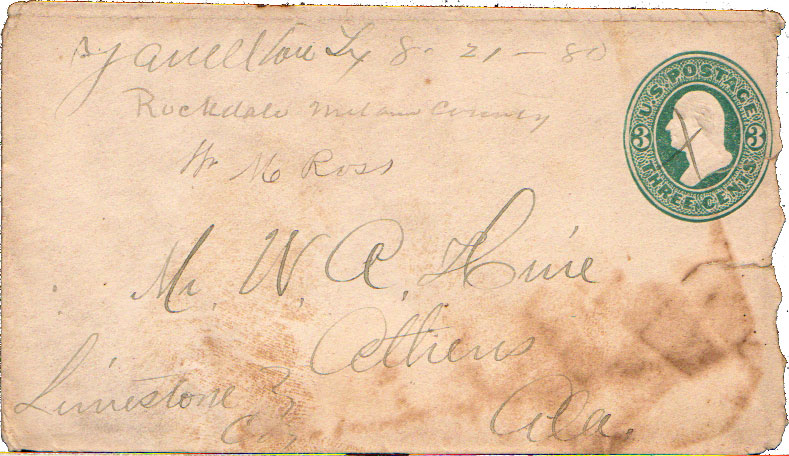 Yarrellton Tx 8-21-80
Rockdale Milam County
Wm M Ross
U.S. POSTAGE
3 3
THREE CENTS
Mr. W. A. Hine
Athens
Limestone
Co,
Ala.